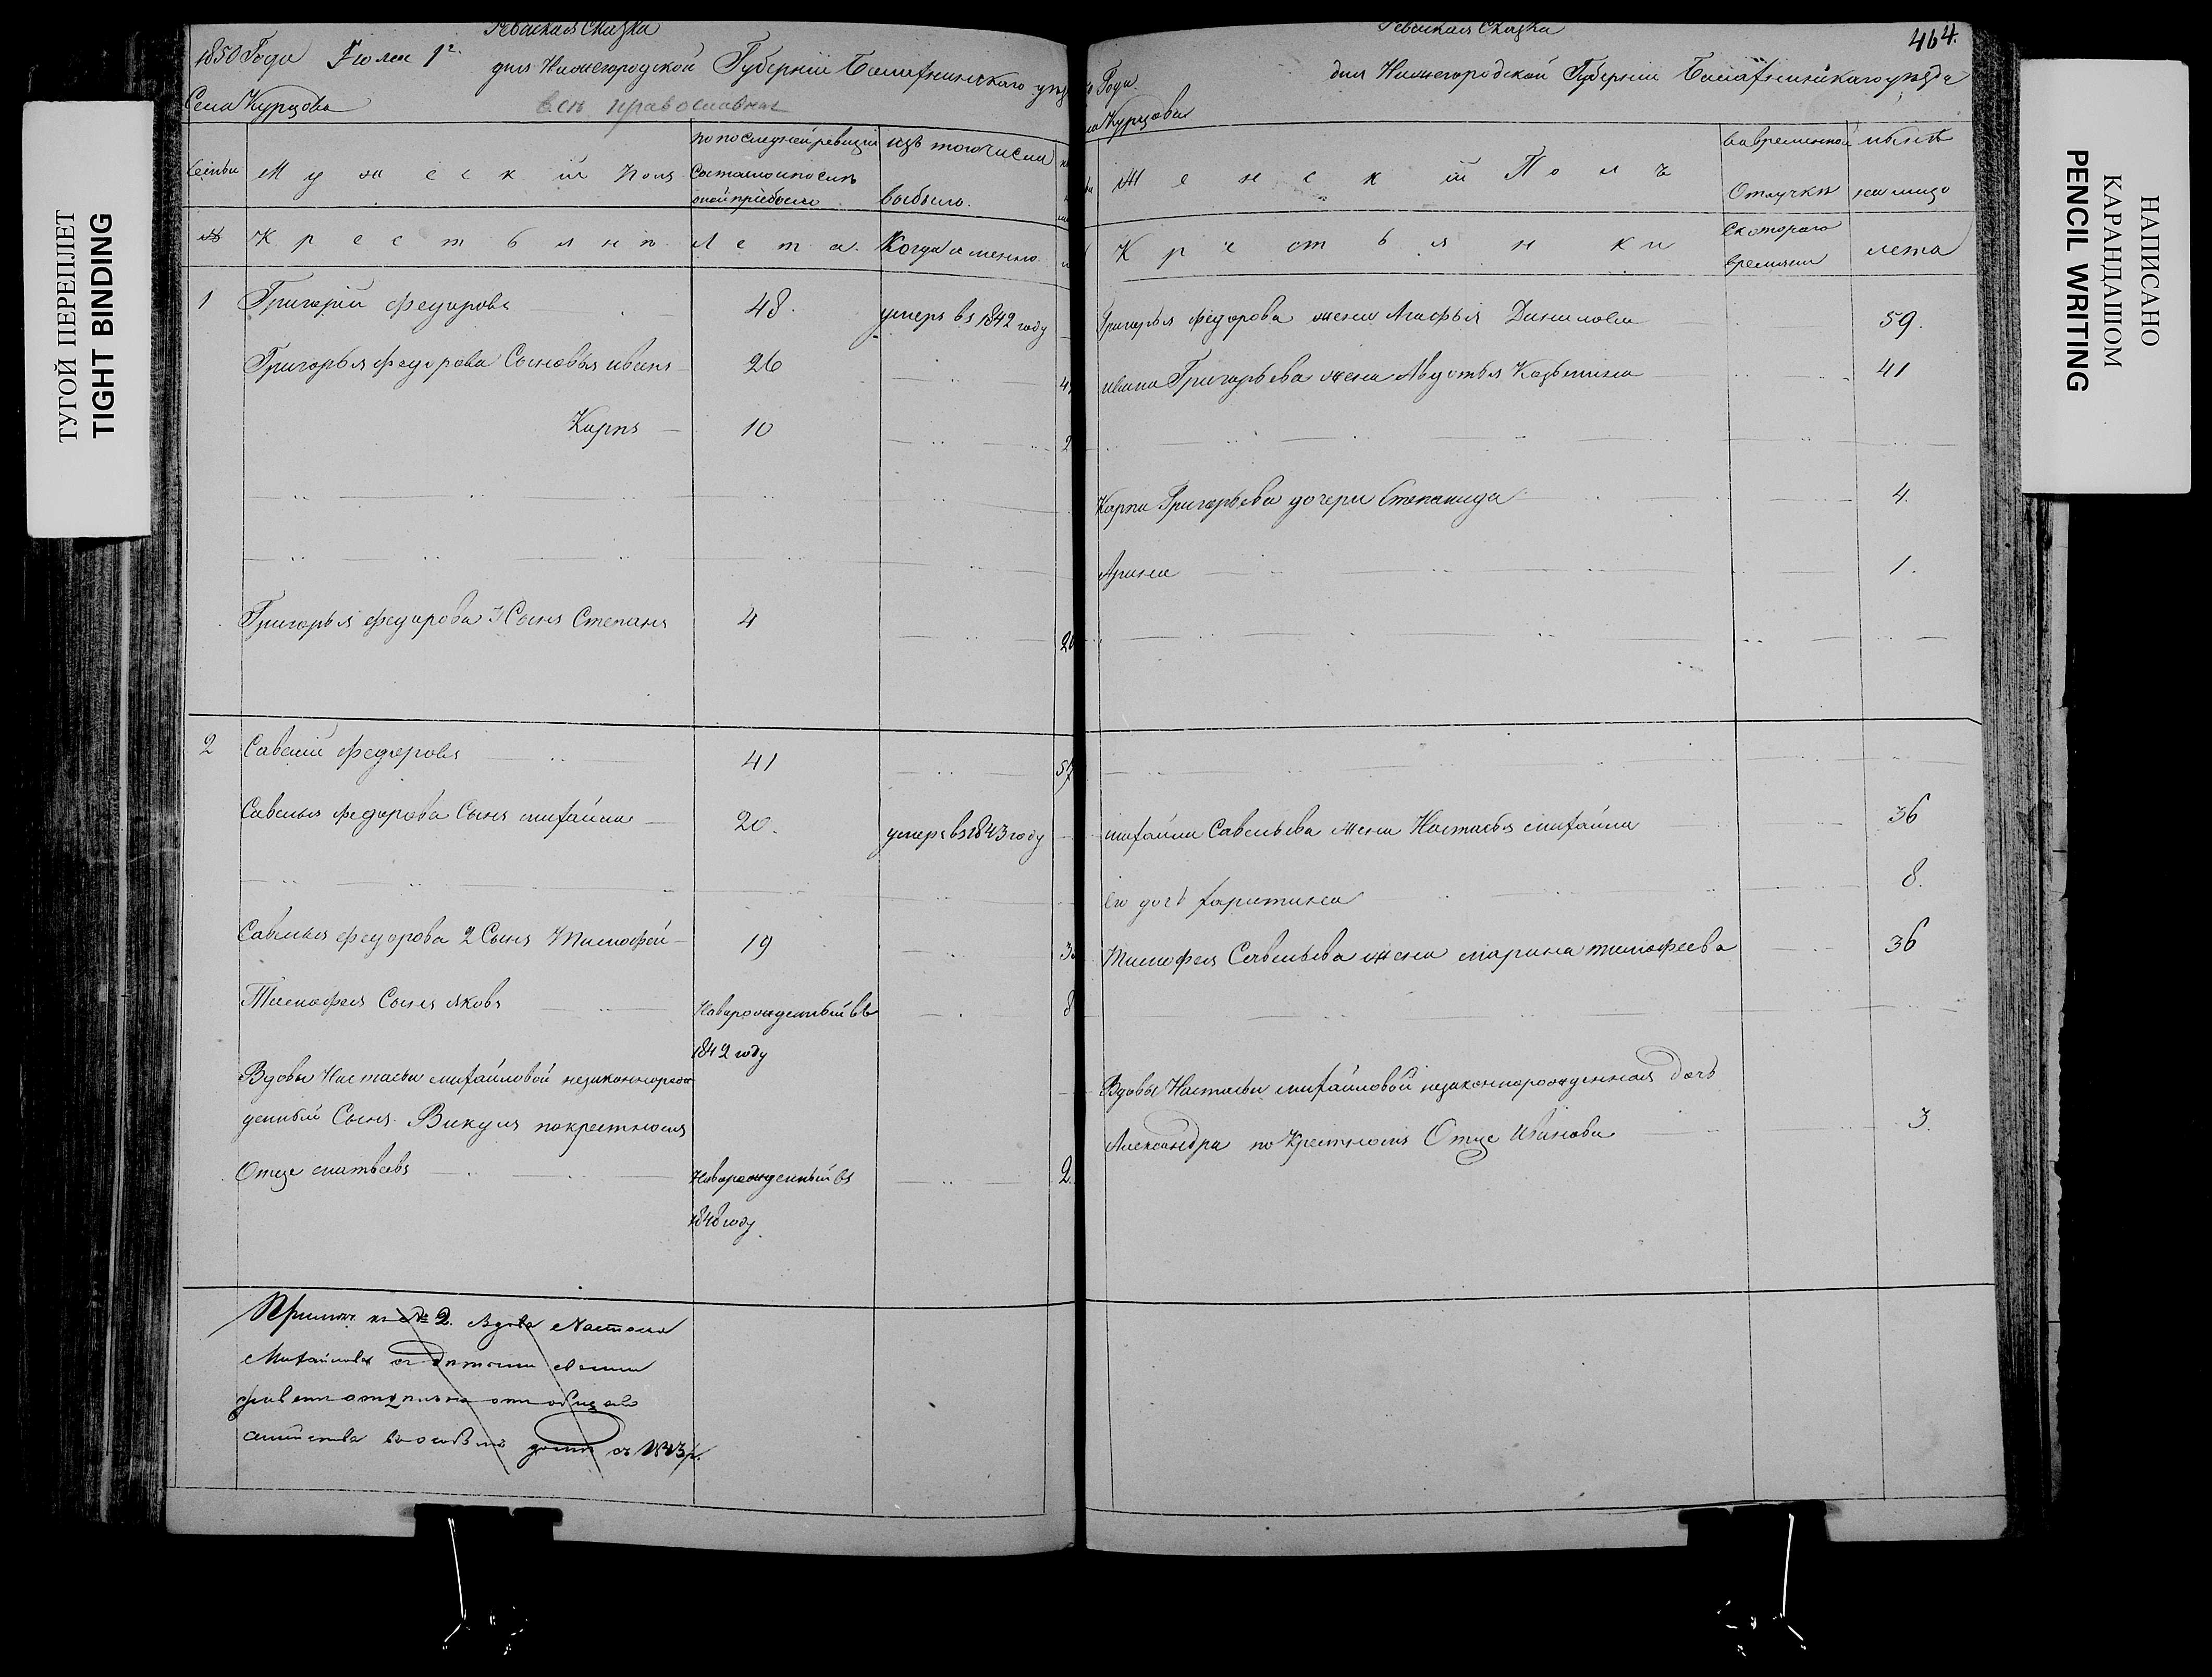 ТУГОЙ ПЕРЕПЛЕТ
TIGHT BINDING
Ревиская Сказка
1850 Года Июля 1го. дня Нижегородской Губернии Балахнинскаго уез
Села Курцова
всѣ православныя
Семьи
Мужескій полъ
по последней ревизiи
Состояло и послѣ
оной прибыло
изъ того числа
выбыло.
№ Крестьянѣ Лета. Когда именно
1 Григорій Федоровъ 48. умеръ въ 1842 году
Григорья Федорова Сыновья иванъ 26
Карпъ 10
Григорья Федорова Сынъ Степанъ 4
2 Савелий Федоровъ 41
Савелья Федорова Сынъ михайла 20. умеръ въ 1843 году
Савелья Федорова 2 Сынъ Тимофей 19
Тимофея Сынъ яковъ Новорожденный въ
1842 году
Вдовы Настасьи михайловой незаконнорож
денный Сынъ Викула покрестномъ
Отце матвеевъ Новорожденный въ
1848 году.
Примѣч. къ № 2. Вдова Настасья
Михайлова съ дѣтьми своими
живетъ отдѣльно отъ общаго
семейства въ особомъ домѣ съ
Ревиская Сказка
464.
Года дня Нижегородской Губерніи Балахнинскаго уезда
Курцова
Женскій Полъ
во временной
Отлучкѣ
ныне
на лицо
Крестьянки
Съ котораго
времени
лета
Григорья Федорова жена Агафья Данилова 59.
ивана Григорьева жена Авдотья Козьмина 41
Карпа Григорьева дочери Степанида 4.
Арина 1.
михайлы Савельева жена Настасья михайла 36
Ево дочь харитина 8.
Тимофея Савельева жена марина тимофеева 36
Вдовы Настасьи михайловой незаконнорожденная дочь
Александра по Крестномъ Отце Иванова 3.
НАПИСАНО
КАРАНДАШОМ
PENCIL WRITING